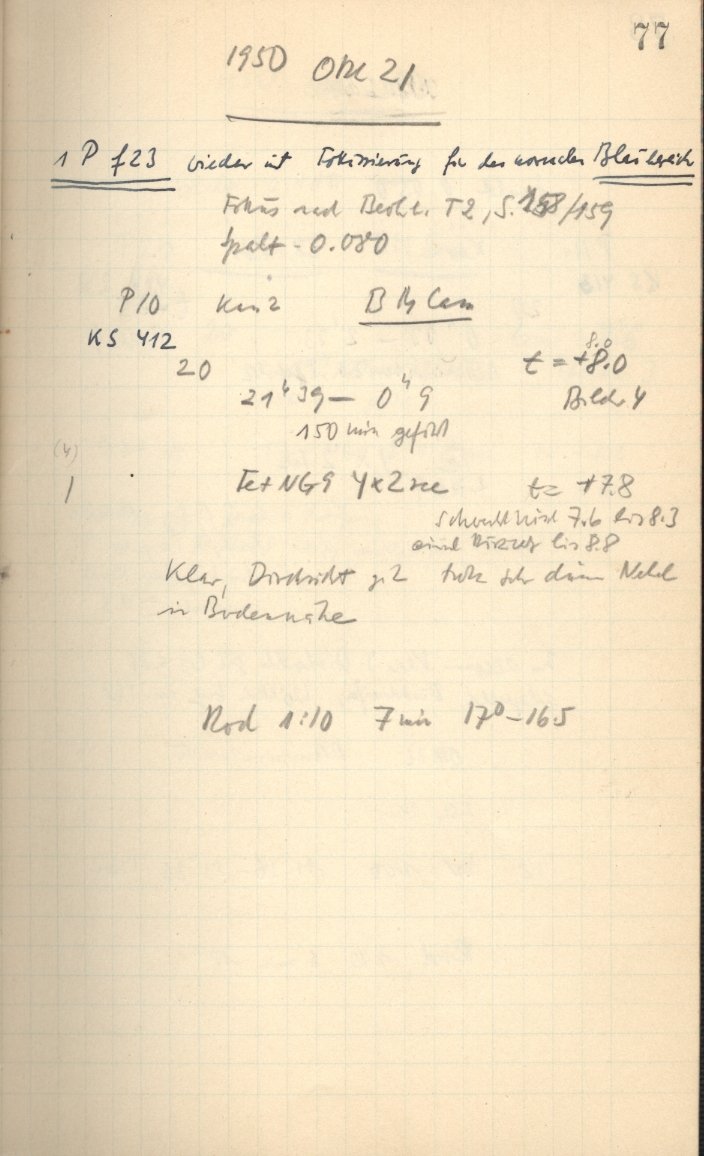 77
1950 Okt 21
1 P f23 wieder mit Fokussierung für den normalen Blaubereich
Fokus nach Beob. T2, S. 158/159
Spalt - 0.080
P10 Kas 2 B M Cam
KS 412
8.0
20 t = +8.0
21ʰ39 — 0ʰ9 Bild 4
150 min geführt
(4)
1 Fe+NG9 4x2 sec t = +7.8
schwankend 7.6 bis 8.3
bis 8.8
Klar, Durchsicht gut trotz sehr dünn Nebel
in Bodennähe
Rod 1:10 7 min 17⁰–16.5